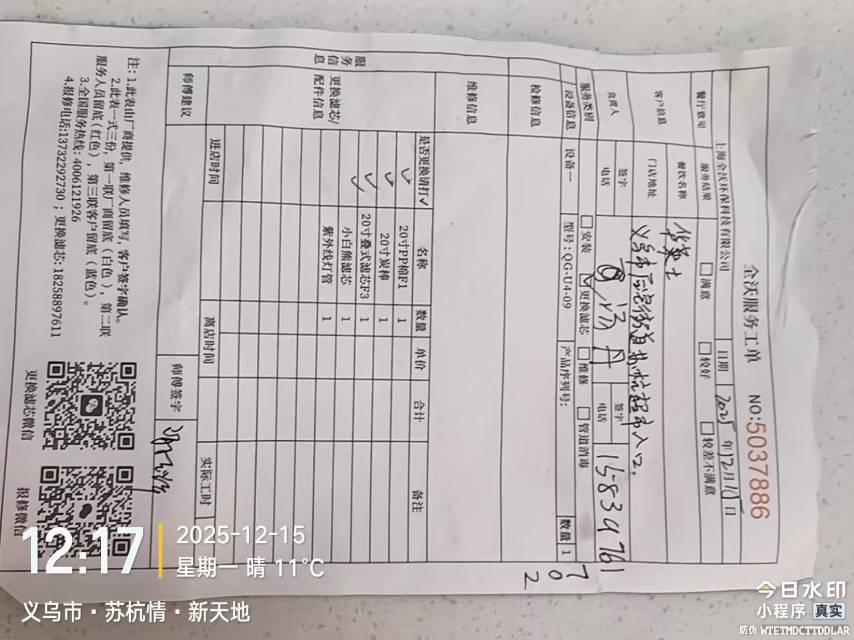 全沃服务工单
NO:5037886
上海全沃环保科技有限公司 日期 2025年12月15日
餐厅意见 服务结果 满意 较好 较差不满意
客户信息 餐饮名称 华莱士
门店地址 义乌市
负责人 签字 签字
电话 电话 1583976
702
服务类别 安装 更换滤芯 维修 管道消毒
设备信息 设备一 型号:QG-U4-09 产品序列号: 数量 1
检修信息
维修信息
服务信息
更换滤芯/配件信息
是否更换请打√ 名称 数量 单价 合计 备注
√ 20寸PP棉F1 1
√ 20寸炭棒 1
√ 20寸叠式滤芯F3 1
√ 小白熊滤芯 1
紫外线灯管 1
进店时间 离店时间 实际工时
师傅建议 师傅签字
注:1.此表由厂商提供,维修人员填写,客户签字确认。
2.此表一式三份,第一联厂商留底(白色),第二联
服务人员留底(红色),第三联客户留底(蓝色)。
3.全国服务热线:4006121926
4.报修电话:13732292730;更换滤芯:18258897611
更换滤芯微信
报修微信
12:17
2025-12-15
星期一 晴 11℃
义乌市·苏杭情·新天地
今日水印
小程序 真实
防伪 WTETMDCTTDDLAR